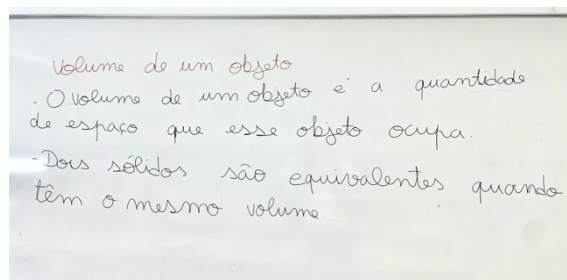 Volume de um objeto
· O volume de um objeto é a quantidade
de espaço que esse objeto ocupa.
- Dois sólidos são equivalentes quando
têm o mesmo volume.